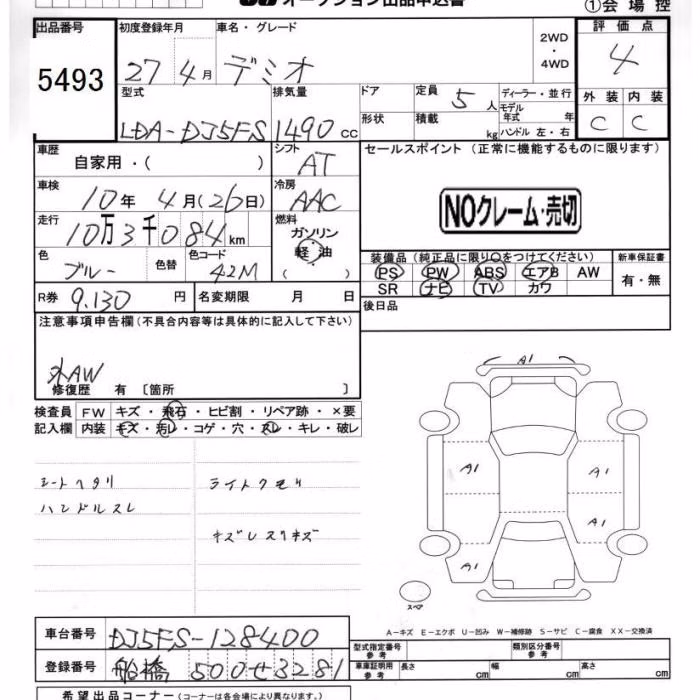 オークション出品申込書
①会場控
出品番号
5493
初度登録年月
27年4月
車名・グレード
デミオ
2WD・4WD
評価点
4
外装 内装
C C
型式
LDA-DJ5FS
排気量
1490cc
ドア
形状
定員
5人
積載
kg
ディーラー・並行
モデル年式 年
ハンドル 左・右
車歴
自家用・( )
シフト
AT
セールスポイント (正常に機能するものに限ります)
NOクレーム・売切
車検
10年 4月(26日)
冷房
AAC
走行
10万3千084km
燃料
ガソリン
軽油
( )
色
ブルー
色替
色コード
42M
装備品 (純正品に限り○をつけてください)
PS PW ABS エアB AW
SR ナビ TV カワ
新車保証書
有・無
R券 9.130円
名変期限 月 日
後日品
注意事項申告欄 (不具合内容等は具体的に記入して下さい)
AW
修復歴 有 〔箇所 〕
検査員 FW キズ・飛石・ヒビ割・リペア跡・×要
記入欄 内装 キズ・汚レ・コゲ・穴・スレ・キレ・破レ
シートヘタリ
ハンドルスレ
ライトクモリ
キズレスリキズ
A1
A1
A1
A1
A1
スペア
A-キズ E-エクボ U-凹み W-補修跡 S-サビ C-腐食 XX-交換済
車台番号
DJ5FS-128400
登録番号
船橋 500せ3281
型式指定番号
参考
類別区分番号
車庫証明用
参考
長さ cm
幅 cm
高さ cm
希望出品コーナー (コーナーは各会場により異なります。)